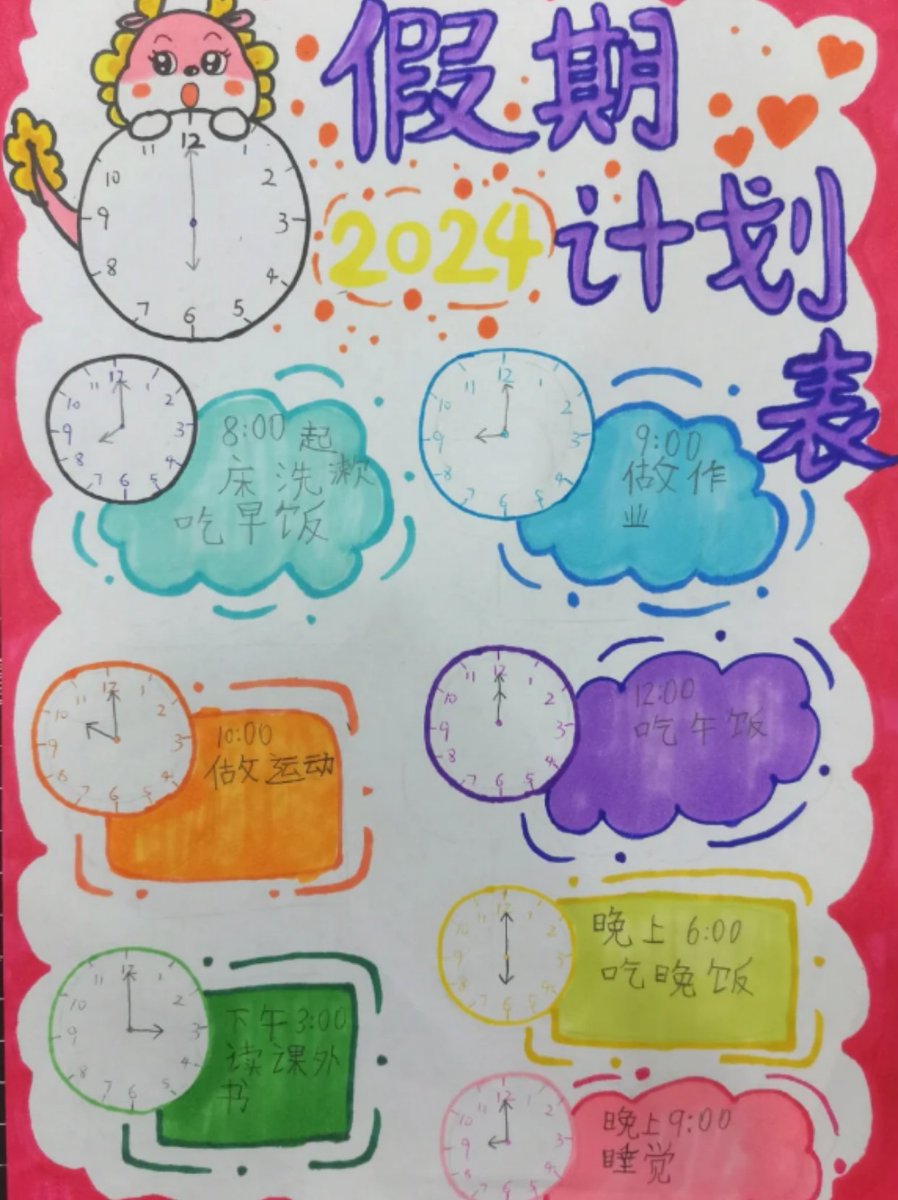 假期
2024
计划
表
12
11
1
10
2
9
3
8
4
7
6
5
8:00 起
床洗漱
吃早饭
9:00
做作
业
10:00
做运动
12:00
吃午饭
下午3:00
读课外
书
晚上 6:00
吃晚饭
晚上9:00
睡觉